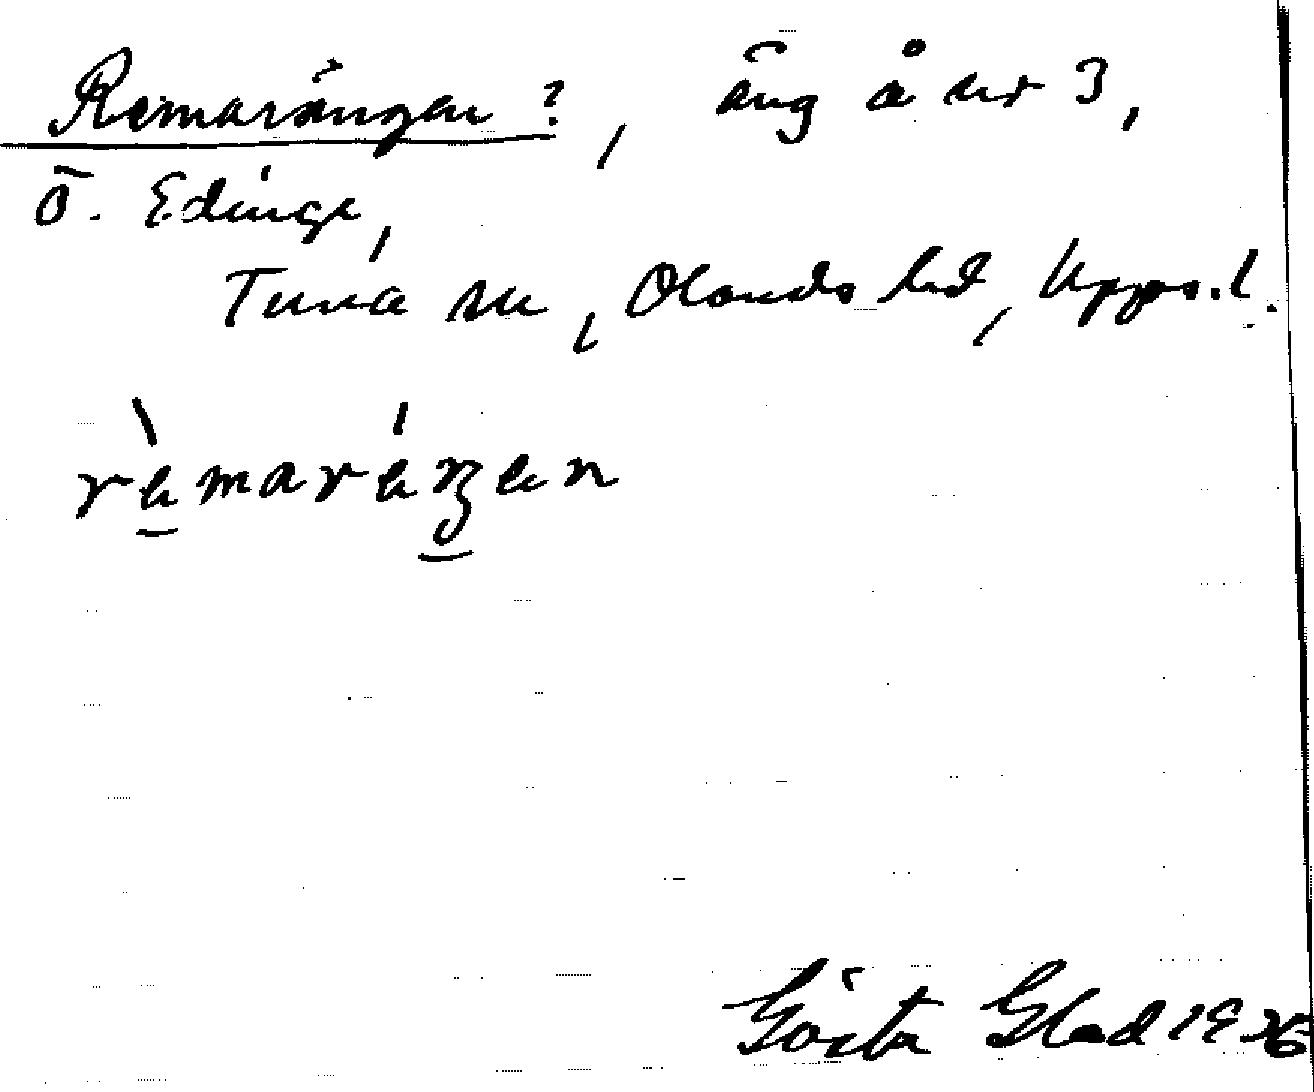 Remarängen?, äng å nr 3,
Ö. Edinge,
Tuna sn, Olands hd, Upps. l.
rèmaräŋen
Gösta Glad 1936